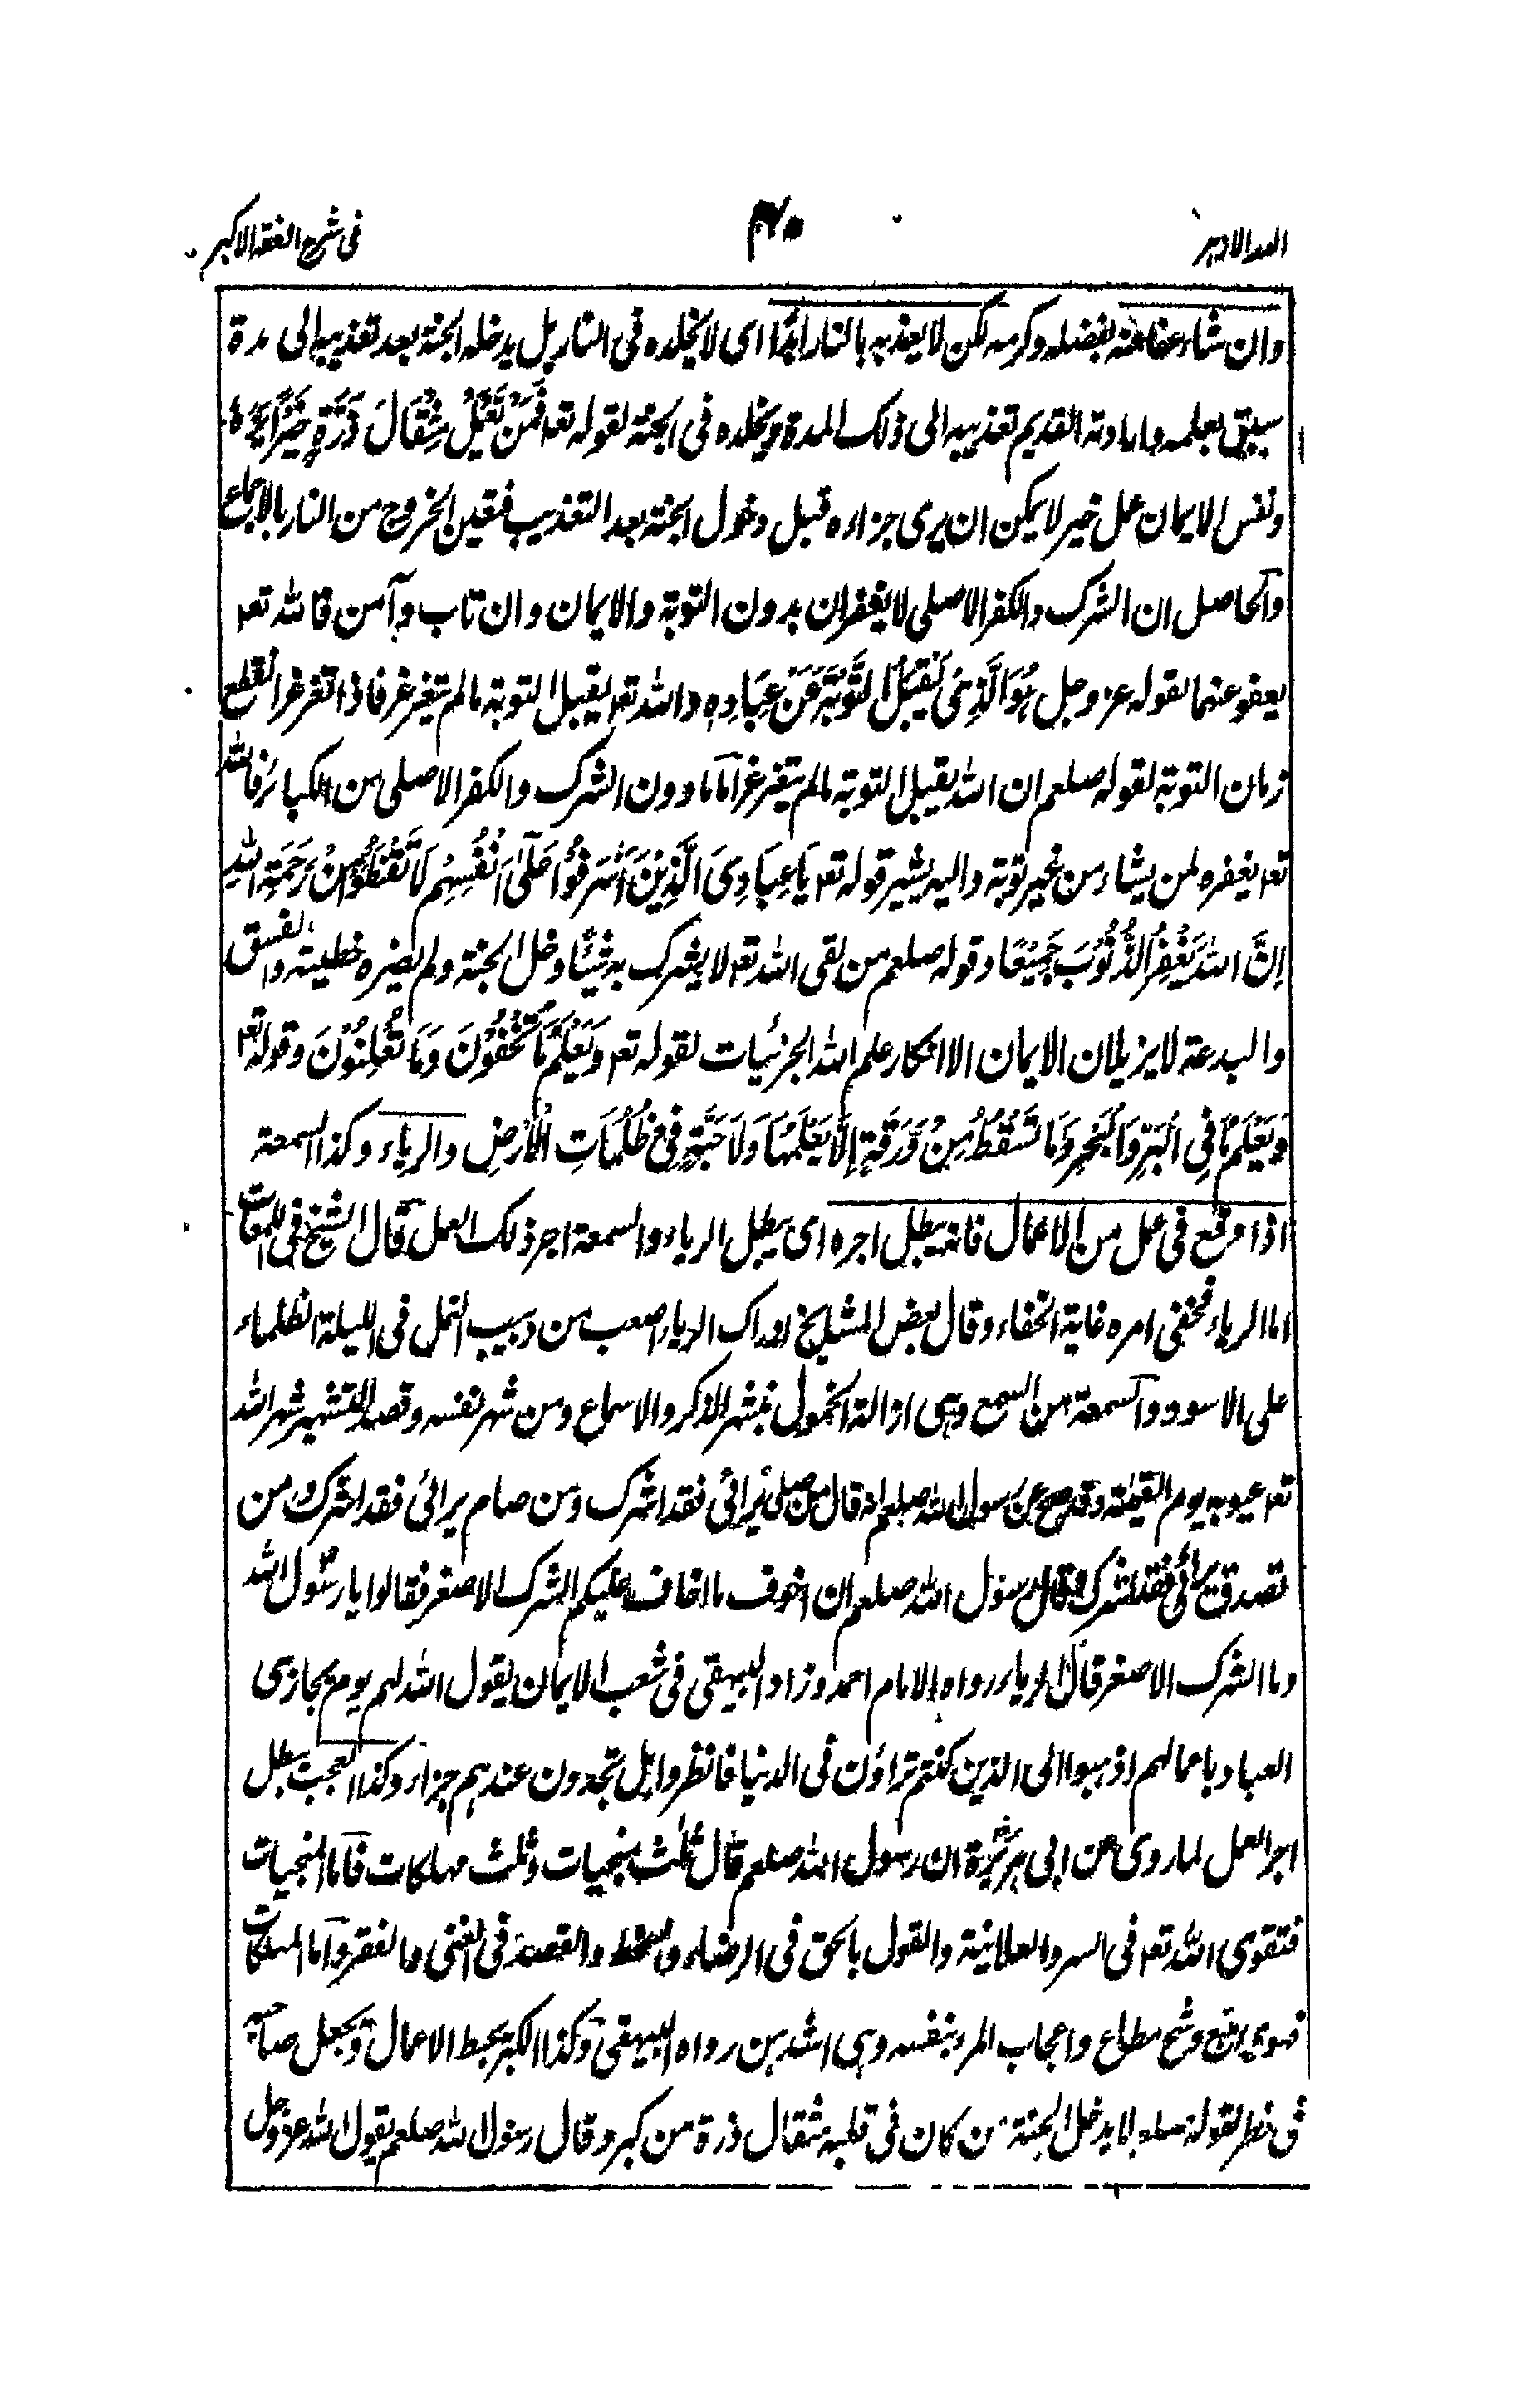 في شرح الفقه الاكبر
وان شاء عفا عنه بفضله وكرمه لكن لا يعذبه بالنار ابدًا اى لا يخلده فى النار بل يدخله الجنة بعد تعذيبه الى مدة
سبق بعلمه وارادته القديم تعذيبه الى ذلك المدة ويخلده فى الجنة لقوله تعه فَمَنْ يَّعْمَلْ مِثْقَالَ ذَرَّةٍ خَيْرًا يَّرَهٗ
ونفس الايمان عمل خير لا يمكن ان يرى جزاءه قبل دخول الجنة بعد التعذيب فتعين الخروج من النار بالاجماع
وآلحاصل ان الشرك والكفر الاصلى لا يغفران بدون التوبة والايمان وان تاب وآمن فالله تعه
يعفو عنهما لقوله عز وجل هُوَ الَّذِىْ يَقْبَلُ التَّوْبَةَ عَنْ عِبَادِهٖ والله تعه يقبل التوبة مالم يتغرغر فاذا تغرغر انقطع
زمان التوبة لقوله صلعم ان الله يقبل التوبة مالم يتغرغر آما ما دون الشرك والكفر الاصلى من الكبائر فالله
تعه يغفره لمن يشاء من غير توبة واليه يشير قوله تعه يَا عِبَادِىَ الَّذِيْنَ اَسْرَفُوْا عَلٰى اَنْفُسِهِمْ لَا تَقْنَطُوْا مِنْ رَّحْمَةِ اللهِ
اِنَّ اللهَ يَغْفِرُ الذُّنُوْبَ جَمِيْعًا وقوله صلعم من لقى الله تعه لا يشرك به شيئًا دخل الجنة ولم يضره خطيئة والفسق
والبدعة لا يزيلان الايمان الا انكار علم الله الجزئيات لقوله تعه وَيَعْلَمُ مَا تُخْفُوْنَ وَمَا تُعْلِنُوْنَ وقوله تعه
وَيَعْلَمُ مَا فِى الْبَرِّ وَالْبَحْرِ وَمَا تَسْقُطُ مِنْ وَّرَقَةٍ اِلَّا يَعْلَمُهَا وَلَا حَبَّةٍ فِىْ ظُلُمَاتِ الْاَرْضِ والرياء وكذا السمعة
اذا وقع فى عمل من الاعمال فانه يبطل اجره اى يبطل الرياء والسمعة اجر ذلك العمل قآل الشيخ فى اللمعات
اما الرياء فخفى امره غاية الخفاء وقال بعض المشايخ ادراك الرياء اصعب من دبيب النمل فى الليلة الظلماء
على الاسود وآلسمعة من السمع وهى ازالة الخمول بنشر الذكر والاسماع ومن شهر نفسه وقصد التشهير شهر الله
تعه عيوبه يوم القيٰمة وقد صح عن رسول الله صلعم انه قال من صلى يُرائى فقد اشرك ومن صام يرائى فقد اشرك ومن
تصدق يرائى فقد اشرك وقال رسول الله صلعم ان اخوف ما اخاف عليكم الشرك الاصغر فقالوا يا رسول الله
وما الشرك الاصغر قال الرياء رواه الامام احمد وزاد البيهقى فى شعب الايمان يقول الله لهم يوم يجازى
العباد باعمالهم اذهبوا الى الذين كنتم تراؤن فى الدنيا فانظروا هل تجدون عندهم جزاء وكذا العجب يبطل
اجر العمل لما روى عن ابى هريرة ان رسول الله صلعم قال ثلث منجيات وثلث مهلكات فآما المنجيات
فتقوى الله تعه فى السر والعلانية والقول بالحق فى الرضاء والسخط والقصد فى الغنى والفقر وآما المهلكات
فهوى متبع وشح مطاع واعجاب المرء بنفسه وهى اشدهن رواه البيهقى وكذا الكبر يحبط الاعمال ويجعل صاحبه
فى خطر لقوله صلعم لا يدخل الجنة من كان فى قلبه مثقال ذرة من كبر وقال رسول الله صلعم يقول الله عز وجل